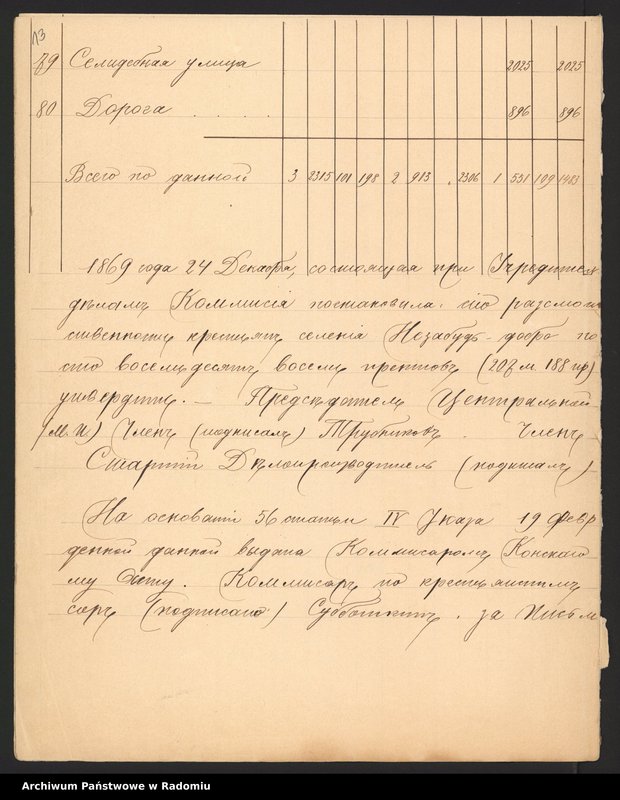 13
79 Селидебная улица 2025 2025
80 Дорога . . . . 896 896
Всего по данной 3 2315 101 198 2 913 . 2306 1 531 109 1483
1869 года 24 Декабря, состоящая при Учредител
дѣламъ Коммисія постановила: сію разсмот
ственность крестьянъ селенія Незабудь-добро по
сто восемьдесятъ восемь прентовъ (207 м. 188 пр)
утвердить. — Предсѣдатель Центральной
(М. П) Членъ (подписалъ) Трубниковъ. Членъ
Старшій Дѣлопроизводитель (подписалъ)
На основаніи 56 статьи IV Указа 19 Февр
денной данной выдана Коммисаромъ Конскаго
му Акту. Коммисаръ по крестьянскимъ
саръ (подписано) Субботкинъ. за Письм
Archiwum Państwowe w Radomiu